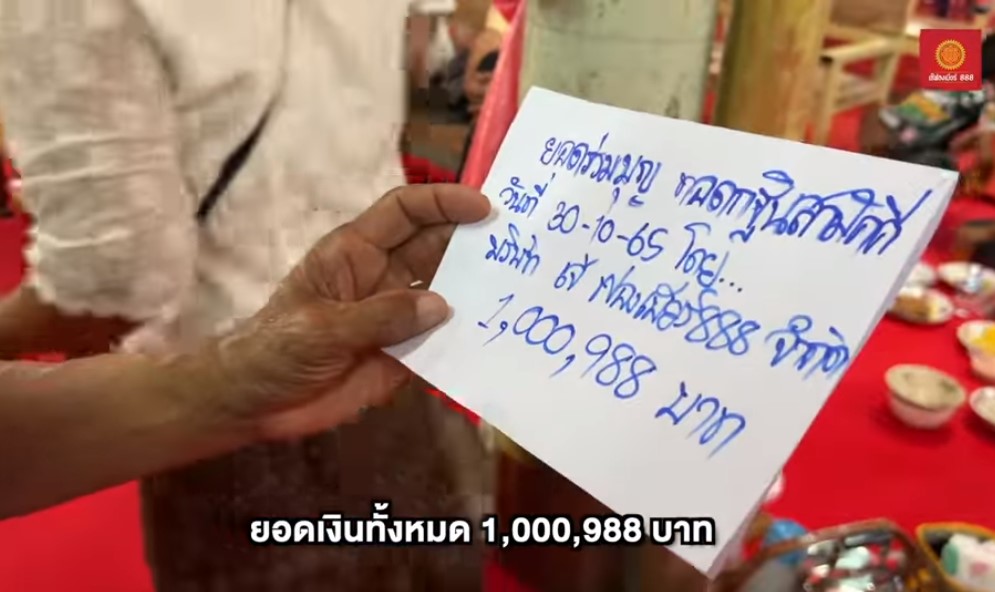 เฮียเบียร์ 888
ยอดร่วมบุญ ทอดกฐินสามัคคี
วันที่ 30-10-65 โดย...
888 จำกัด
1,000,988 บาท
ยอดเงินทั้งหมด 1,000,988 บาท